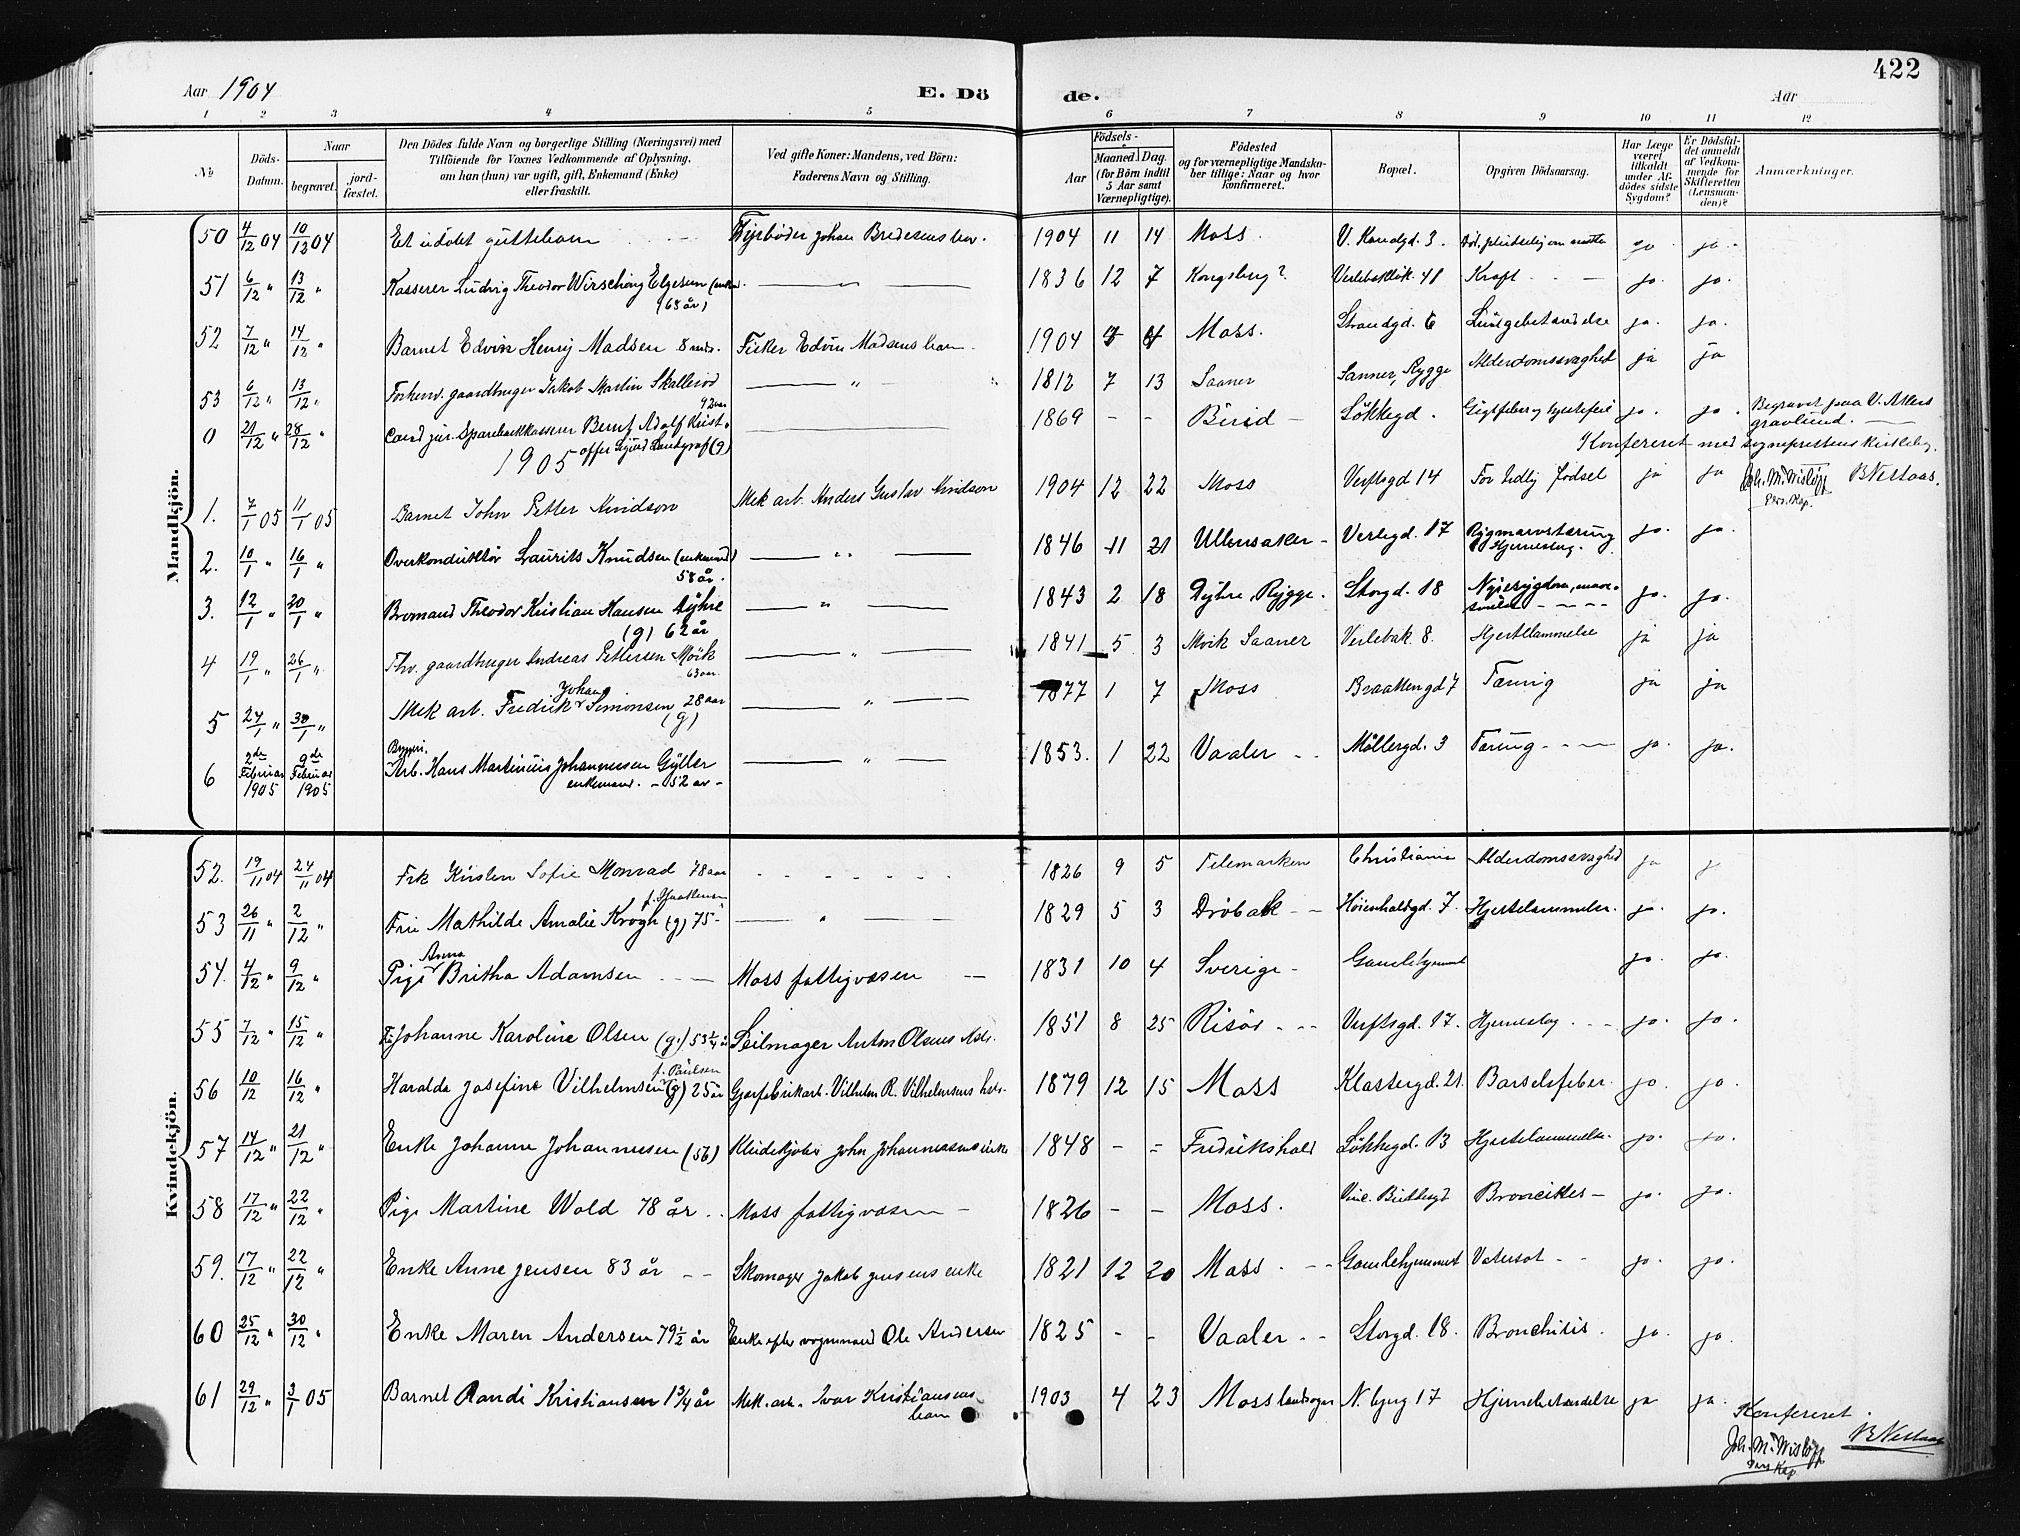 422
Aar 1904 E. Dö de. Aar
1 2 3 4 5 6 7 8 9 10 11 12
№
Döds-Datum.
Naar
begravet.
jord-fæstet.
Den Dödes fulde Navn og borgerlige Stilling (Næringsvei) med
Tilföiende for Voxnes Vedkommende af Oplysning,
om han (hun) var ugift, gift, Enkemand (Enke)
eller fraskilt.
Ved gifte Koner: Mandens, ved Börn:
Faderens Navn og Stilling.
Födsels-
Aar
Maaned. Dag.
(for Börn indtil
5 Aar samt
Værnepligtige).
Födested
og for værnepligtige Mandska-
ber tillige: Naar og hvor
konfirmeret.
Bopæl.
Opgiven Dödsaarsag.
Har Læge
været
tilkaldt
under Af-
dödes sidste
Sygdom?
Er Dödsfal-
det anmeldt
af Vedkom-
mende for
Skifteretten
(Lensman-
den)?
Anmærkninger.
Mandkjön.
50 4/12 04 10/12 04 Et udöbt guttebarn Fyrböder Johan Bredesens barn. 1904 11 14 Moss. V. Kanalgd. 3. ja ja.
51 6/12 " 13/12 " Kasserer Ludvig Theodor Elgesem (enkem. " 1836 12 7 Kongsberg? Verlebakbk. 41 Kræft ja. ja.
(68 år)
52 7/12 " 14/12 " Barnet Edvin Henry Madsen 8 mdr. Fisker Edvin Madsens barn. 1904 7 4 Moss. Strandgd. 6 Lungebetændelse ja. ja.
53 6/12 " 13/12 " Forhenv. gaardbruger Jakob Martin Skallerød " 1812 7 13 Saaner Sanner, Rygge Alderdomssvaghed ja ja
92 aar
0 21/12 " 28/12 " cand jur. Sparebankkasserer Bernt Adolf Krist- 1869 - - Birid Løkkegd. Gigtfeber og hjertefeil ja. ja. Begravet paa V. Akers
offer Sigurd Landgraf (g) gravlund.
1905 Konfereret med sogneprestens kirkebog.
Joh. M. Wisløff B Nestaas.
Pers. Kap.
1. 7/1 05 11/1 05 Barnet John Petter Arvidson Mek arb. Anders Gustav Arvidson 1904 12 22 Moss Verftsgd 14 For tidlig fødsel ja ja
2. 10/1 " 16/1 " Overkonduktör Laurits Knudsen (enkemand) " 1846 11 21 Ullensaker - Verlegd. 17 Rygmarvstæring ja. ja.
58 år. Hjerneslag.
3. 12/1 " 20/1 " Bromand Theodor Kristian Hansen Dyhre " 1843 2 18 Dyhre, Rygge. Storgd. 18 Nyresygdom, ja. ja.
(g) 62 år
4 19/1 " 26/1 " Fhv. gaardbruger Andreas Pettersen Mvik " 1841 5 3 Mvik Saaner Verlebak. 8. Hjertelammelse ja ja
63 aar.
5 24/1 " 30/1 " Mek arb. Fredrik Johan Simonsen 28 aar " 1877 1 7 Moss Braattengd 7 Tæring ja ja
(g)
6 2de Februar 1905 9de Februar 1905 Bryggeri. Arb. Hans Martinius Johannesen Gyller " 1853. 1 22 Vaaler Möllergd. 3 Tæring ja. ja.
enkemand. - 52 år -
Kvindekjön.
52. 19/11 04 24/11 04 Frk Kirsten Sofie Monrad 78 aar 1826 9 5 Telemarken Christiania Alderdomssvaghed ja
53 26/11 " 2/12 " Fru Mathilde Amalie Krogh (g) 75 - " 1829 5 3 Dröbak Höienhaldgd. 7. Hjertelammelse. ja. ja.
54. 4/12 " 9/12 " Pige Anna Britha Adamsen Moss fattigvæsen 1831 10 4 Sverige - Gamlehjemmet ja. ja.
55 7/12 " 15/12 " Johanne Karoline Olsen (g.) 53 1/4 år Seilmager Anton Olsens hds. 1851 8 25 Risör Verftsgd. 17. Hjerneslag ja. ja.
56 10/12 16/12 " Haralda Josefine Vilhelmsen (g) f. Paulsen 25 år Gjærfabrikarb. Vilhelm R. Vilhelmsens hds. 1879 12 15 Moss Klostergd. 21. Barselsfeber. ja. ja.
57 14/12 " 21/12 " Enke Johanne Johannesen (56) Johannesens enke 1848 - - Fredrikshald Løkkegd. 13 Hjertelammelse. ja. ja.
58 17/12 " 22/12 " Pige Martine Wold 78 år Moss fattigvæsen 1826 - - Moss. ja. ja.
59. 17/12 " 22/12 " Enke Anne Jensen 83 år Skomager Jakob Jensens enke 1821 12 20 Moss Gamlehjemmet Vatersot ja. ja.
60 25/12 " 30/12 " Enke Maren Andersen 79 1/2 år Enke efter vognmand Ole Andersen 1825 - - Vaaler Storgd. 18. Bronchitis. ja. ja.
61 29/12 " 3/1 05 Barnet Randi Kristiansen 1 3/4 år Mek. arb. Ivar Kristiansens 1903 4 23 Moss landsogn N. bjerg 17 Hjernebetændelse ja ja.
barn
Konfereret.
Joh. M. Wisløff B Nestaas
Pers Kap